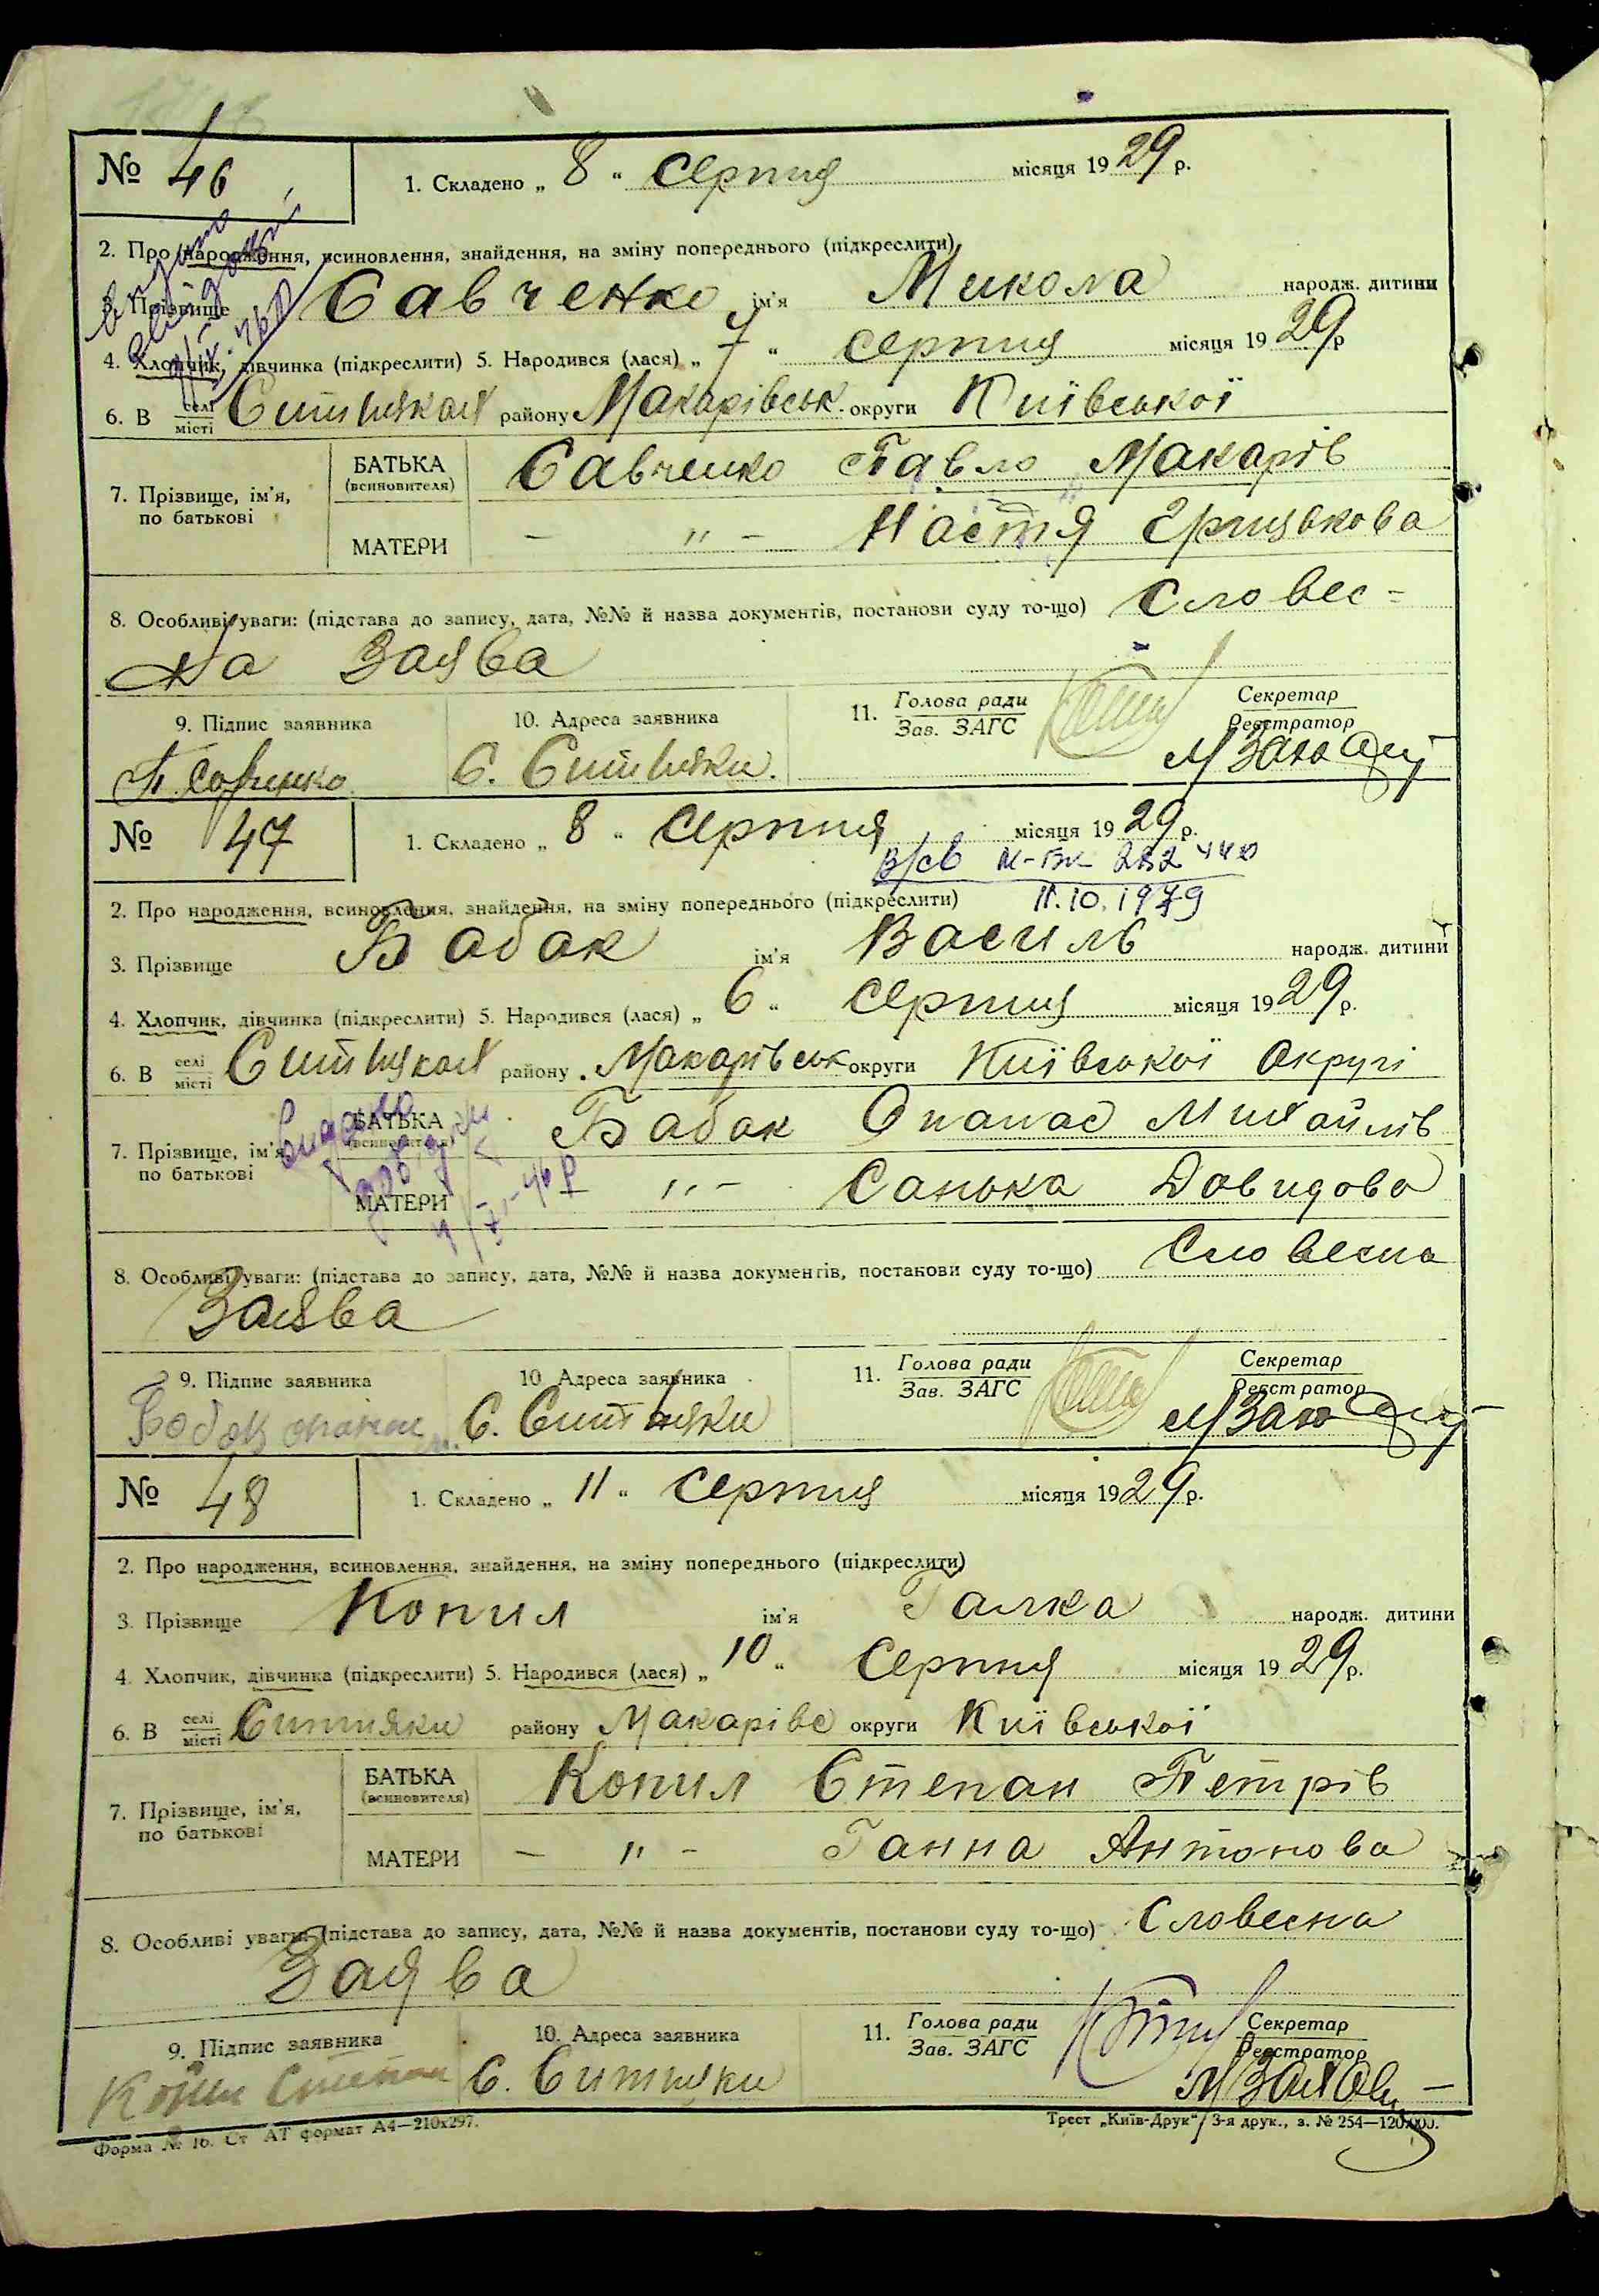 № 46
1. Складено „ 8 “ серпня місяця 1929 р.
2. Про народження, всиновлення, знайдення, на зміну попереднього (підкреслити)
3. Прізвище Савченко ім'я Микола народж. дитини
4. Хлопчик, дівчинка (підкреслити) 5. Народився (лася) „ 7 “ серпня місяця 1929 р
6. В селі місті Ситняках району Макарівськ. округи Київської
7. Прізвище, ім'я, по батькові
БАТЬКА (всиновителя) Савченко Павло Макарів
МАТЕРИ — „ — Настя Грицькова
8. Особливі уваги: (підстава до запису, дата, №№ й назва документів, постанови суду то-що) Словес=
на Заява
9. Підпис заявника 10. Адреса заявника 11. Голова ради Зав. ЗАГС Секретар Реєстратор
П. Савченко С. Ситняки.
№ 47
1. Складено „ 8 “ серпня місяця 1929 р.
11.10.1979
2. Про народження, всиновлення, знайдення, на зміну попереднього (підкреслити)
3. Прізвище Бабак ім'я Василь народж. дитини
4. Хлопчик, дівчинка (підкреслити) 5. Народився (лася) „ 6 “ серпня місяця 1929 р.
6. В селі місті Ситняках району Макарівськ округи Київської округи
7. Прізвище, ім'я, по батькові
БАТЬКА (всиновителя) Бабак Опанас Михайлів
МАТЕРИ „ — Санька Давидова
8. Особливі уваги: (підстава до запису, дата, №№ й назва документів, постанови суду то-що) Словесна
Заява
9. Підпис заявника 10. Адреса заявника 11. Голова ради Зав. ЗАГС Секретар Реєстратор
С. Ситняки
№ 48
1. Складено „ 11 “ серпня місяця 1929 р.
2. Про народження, всиновлення, знайдення, на зміну попереднього (підкреслити)
3. Прізвище Копил ім'я Галка народж. дитини
4. Хлопчик, дівчинка (підкреслити) 5. Народився (лася) „ 10 “ Серпня місяця 1929 р.
6. В селі місті Ситняки району Макарівс округи Київської
7. Прізвище, ім'я, по батькові
БАТЬКА (всиновителя) Копил Степан Петрів
МАТЕРИ — „ — Ганна Антонова
8. Особливі уваги: (підстава до запису, дата, №№ й назва документів, постанови суду то-що) Словесна
Заява
9. Підпис заявника 10. Адреса заявника 11. Голова ради Зав. ЗАГС Секретар Реєстратор
С. Ситняки
Форма № 16. Ст АТ формат А4—210х297.
Трест „Київ-Друк“ 3-я друк., з. № 254—120.000.